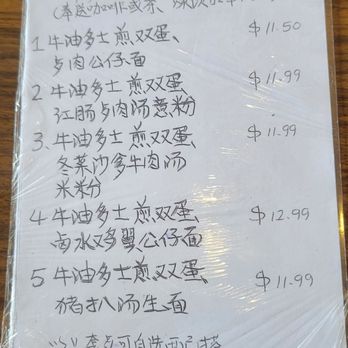 (奉送咖啡或茶、
1 牛油多士煎双蛋、 $11.50
卤肉公仔面
2 牛油多士煎双蛋、 $11.99
红肠卤肉汤意粉
3、牛油多士煎双蛋、 $11.99
冬菜沙爹牛肉汤
米粉
4 牛油多士煎双蛋、 $12.99
卤水鸡翼公仔面
5 牛油多士煎双蛋、 $11.99
猪扒汤生面
以上套点可自选